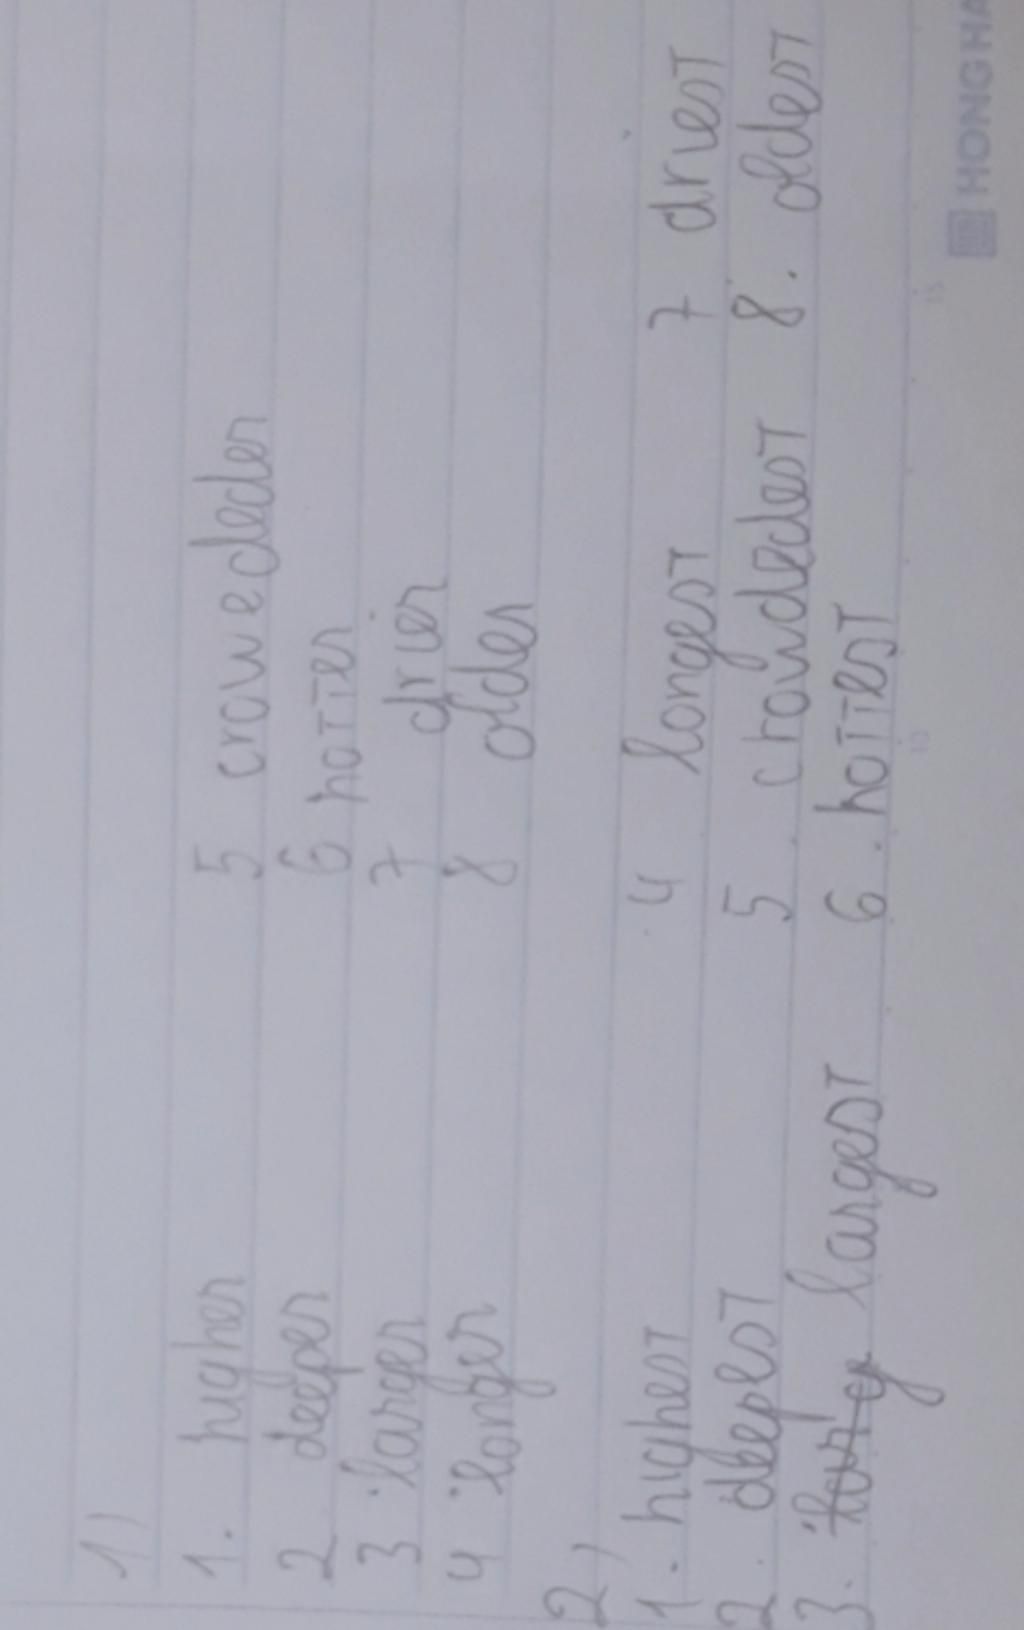 1)
1. higher 5 crowededer
2 deeper 6 hotter
3 larger 7 drier
4 longer 8 older
2)
1. highest 4 longest 7 driest
2. deepest 5. chowdedest 8. oldest
3. largest 6. hottest
HONGHA